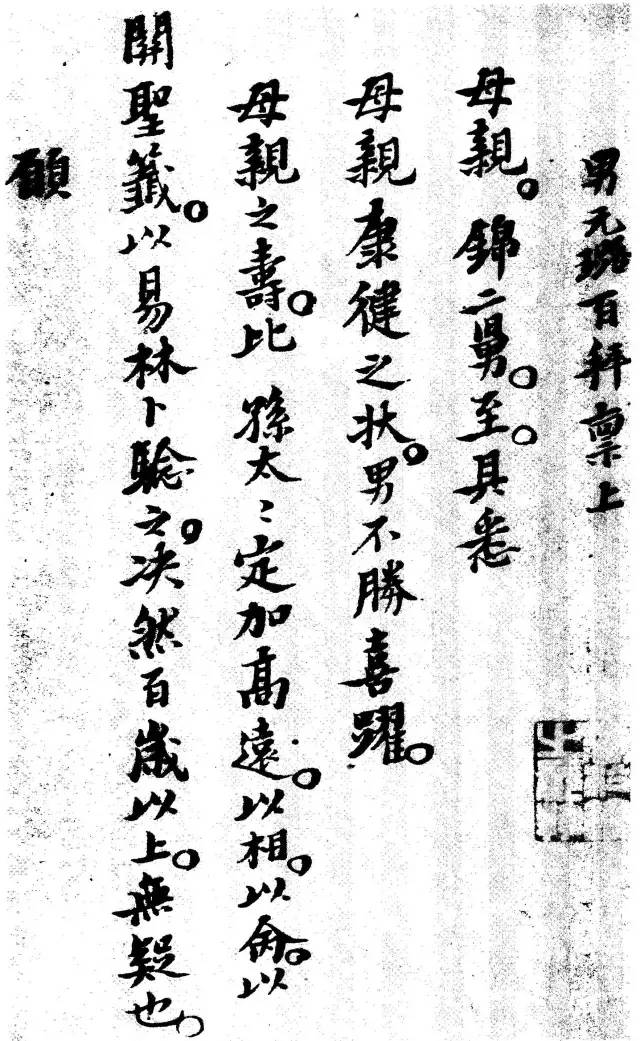 男元璐百拜稟上
母親。錦二舅。至。具悉
母親康健之狀。男不勝喜躍。
母親之壽。比 孫太〻定加高遠。以相。以命。以
關聖籤。以易林卜驗之。決然百歲以上。無疑也。
願